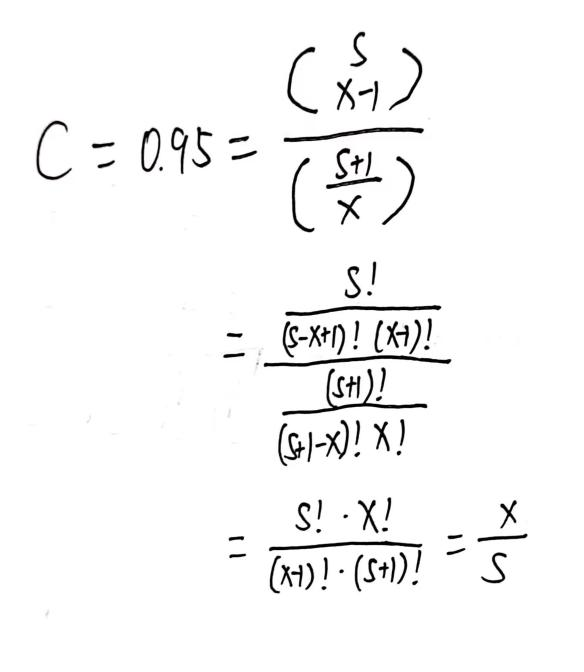 C = 0.95 = \frac{\binom{S}{X-1}}{\left(\frac{S+1}{X}\right)}
= \frac{\frac{S!}{(S-X+1)! (X-1)!}}{\frac{(S+1)!}{(S+1-X)! X!}}
= \frac{S! \cdot X!}{(X-1)! \cdot (S+1)!} = \frac{X}{S}